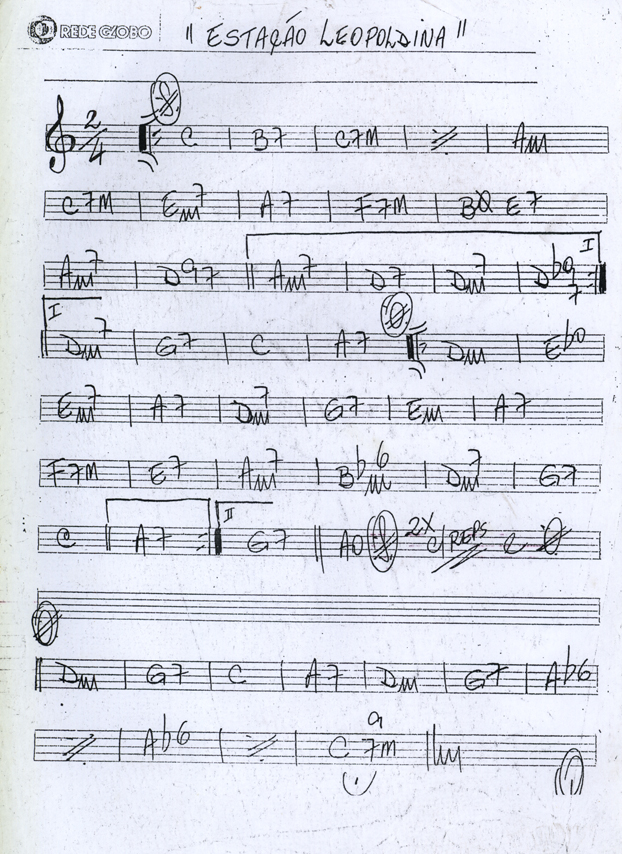 REDE GLOBO " ESTAÇÃO LEOPOLDINA "
2/4 C | B7 | C7M | ٪ | Am
C7M | Em7 | A7 | F7M | BØ E7
Am7 | D97 || Am7 | D7 | Dm7 | Db9 7 I
I Dm7 | G7 | C | A7 Dm | Eb0
Em7 | A7 | Dm7 | G7 | Em | A7
F7M | E7 | Am7 | Bbm6 | Dm7 | G7
C || A7 I G7 || AO 2X C/REPS E
Dm | G7 | C | A7 | Dm | G7 | Ab6
٪ | Ab6 | ٪ | C 7M 9